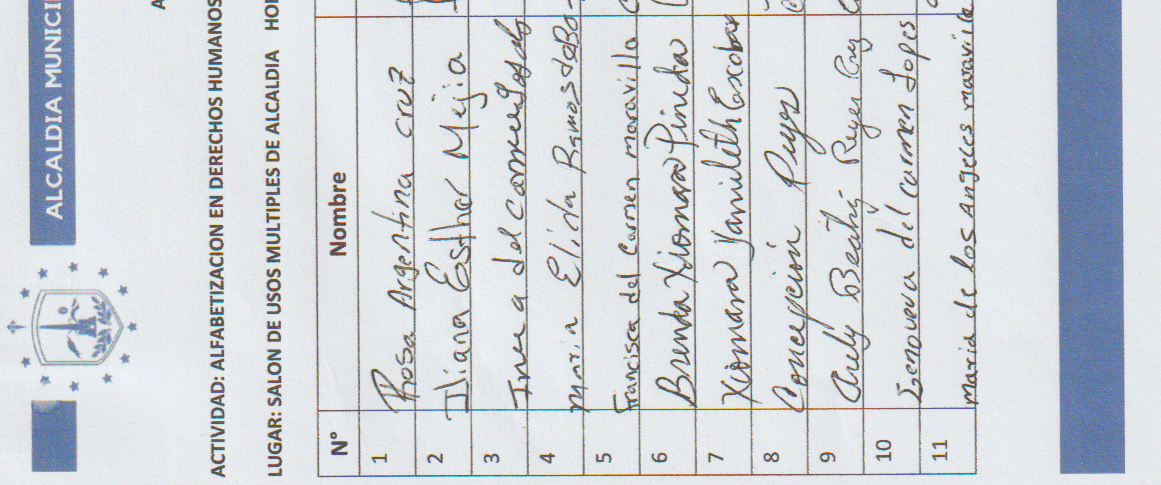 ALCALDIA MUNICI
A
ACTIVIDAD: ALFABETIZACION EN DERECHOS HUMANOS
LUGAR: SALON DE USOS MULTIPLES DE ALCALDIA HO
N° Nombre
1 Rosa Argentina cruz
2 Iliana Esther Mejia
3 del carmen
4 Maria Elida Ramos
5 Francisca del Carmen maravilla
6 Brenda Xiomara Pineda
7 Xiomara Yamileth Escobar
8 Concepcion Reyes
9 Beatriz Reyes Ruiz
10 Genoveva del carmen Lopes
11 Maria de los Angeles maravilla